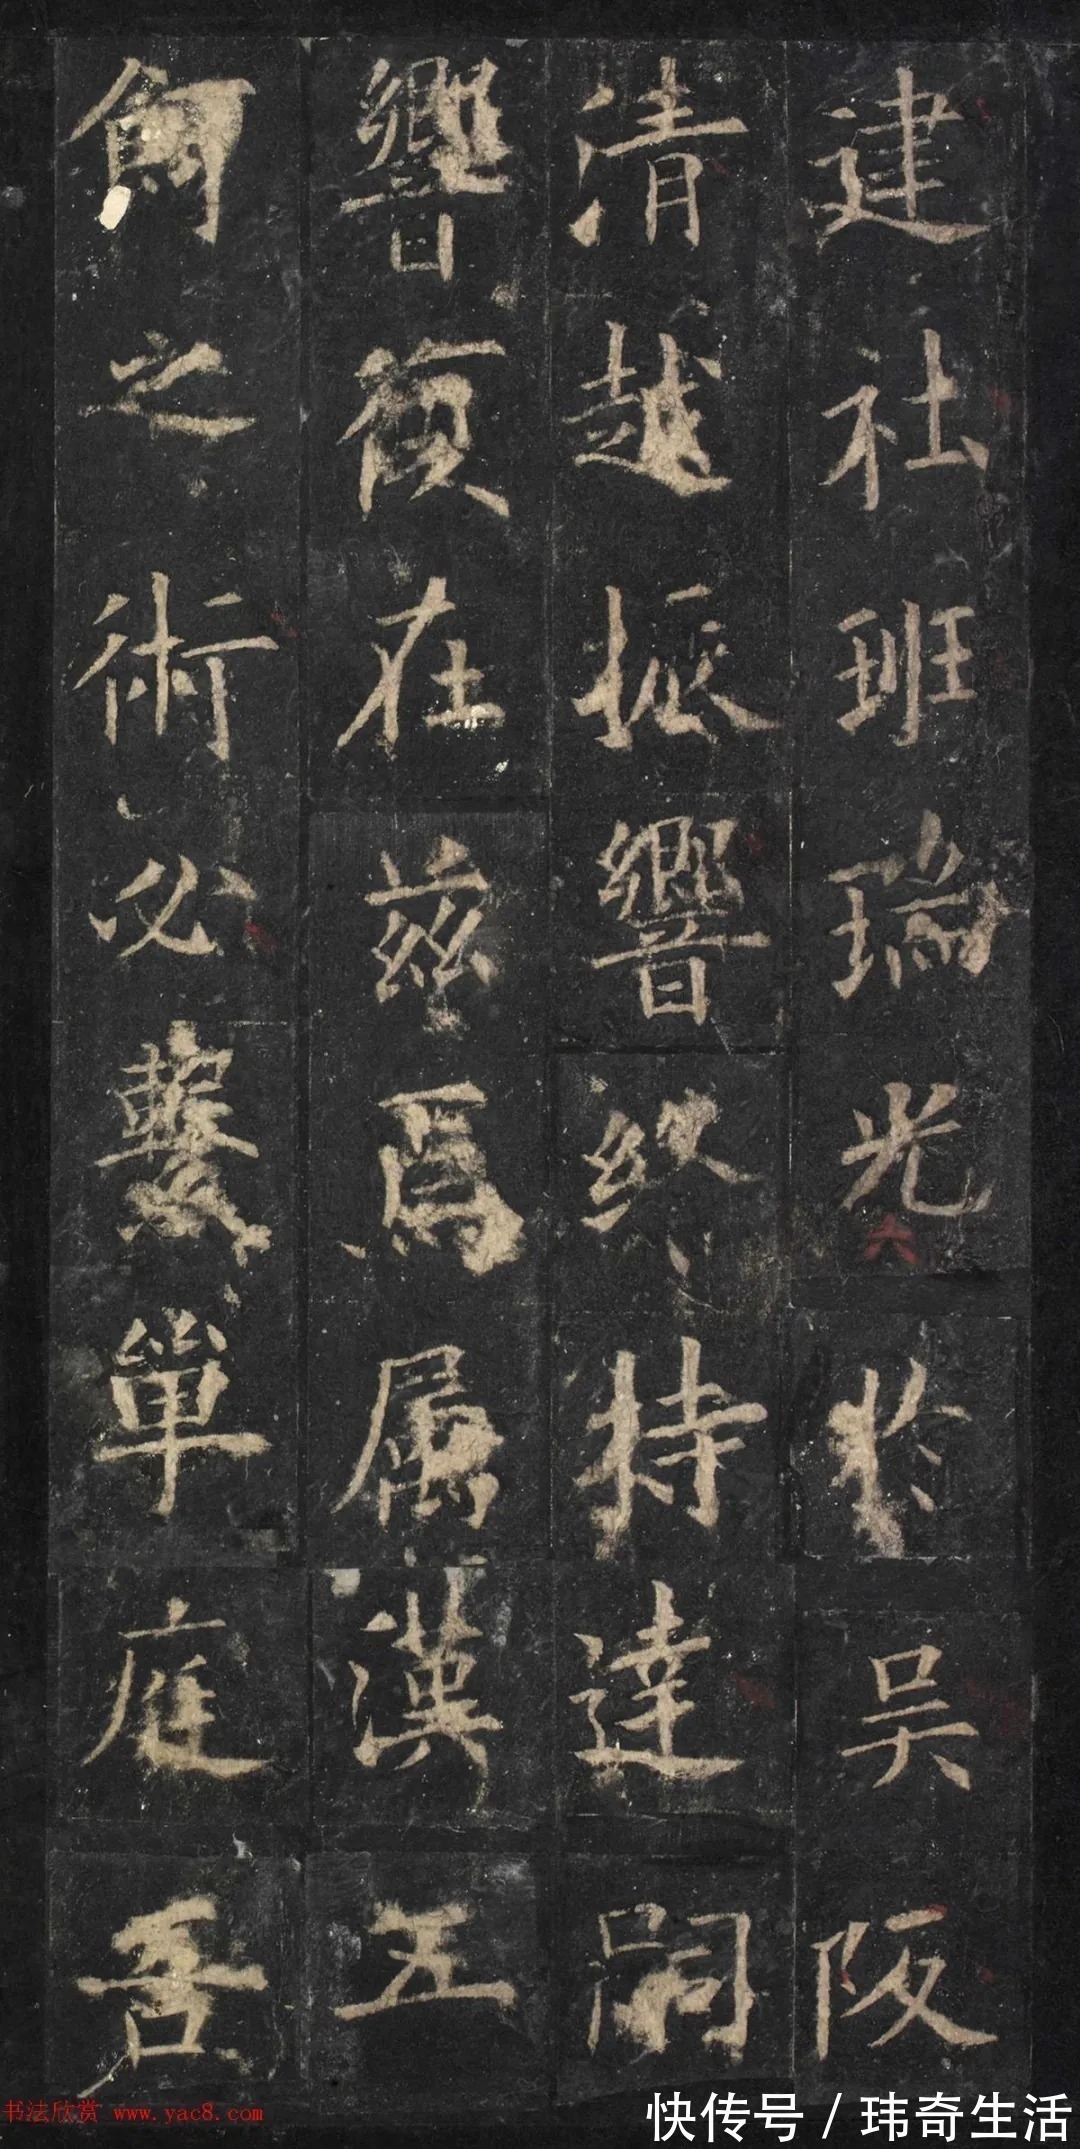 建社班瑞光於吴阪
清越振響終特達嗣
響復在兹焉属漢五
餌之術必單庭吾
书法欣赏 www.yac8.com
快传号 / 玮奇生活